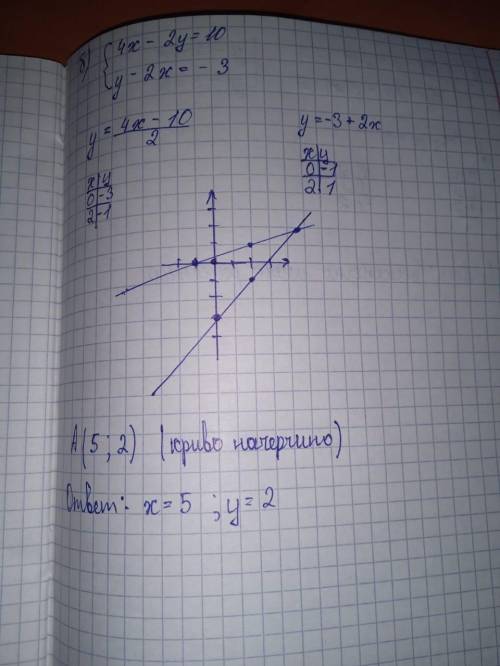 б) { 4x - 2y = 10
y - 2x = - 3
y = (4x - 10)/2
y = -3 + 2x
x | y
0 | -3
2 | -1
x | y
0 | -1
2 | 1
A(5 ; 2) (криво начерчино)
Ответ: x = 5 ; y = 2